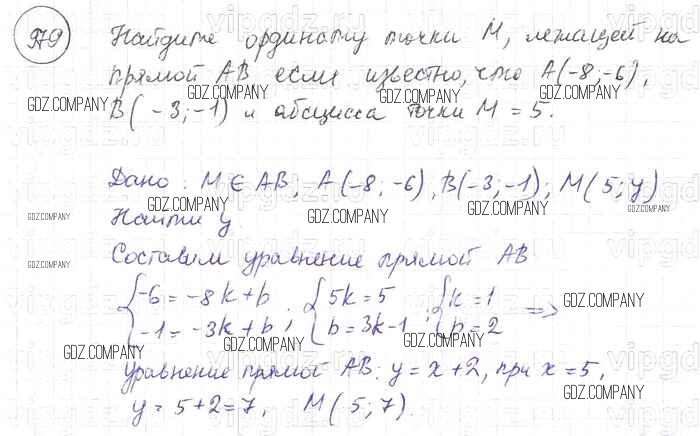 979 Найдите ординату точки M, лежащей на
прямой AB если известно, что A(-8;-6),
B(-3;-1) и абсцисса точки M = 5.
Дано: M ∈ AB, A(-8; -6), B(-3; -1); M(5; y)
Найти y.
Составим уравнение прямой AB
{-6 = -8k + b; {5k = 5; {k = 1 =>
{-1 = -3k + b; {b = 3k - 1; {b = 2
уравнение прямой AB: y = x + 2, при x = 5,
y = 5 + 2 = 7, M(5; 7).
GDZ.COMPANY GDZ.COMPANY GDZ.COMPANY GDZ.COMPANY
GDZ.COMPANY GDZ.COMPANY GDZ.COMPANY GDZ.COMPANY
GDZ.COMPANY
GDZ.COMPANY
GDZ.COMPANY GDZ.COMPANY GDZ.COMPANY
GDZ.COMPANY